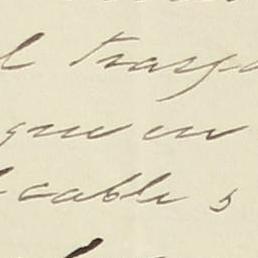 l trasp
que en
cable s